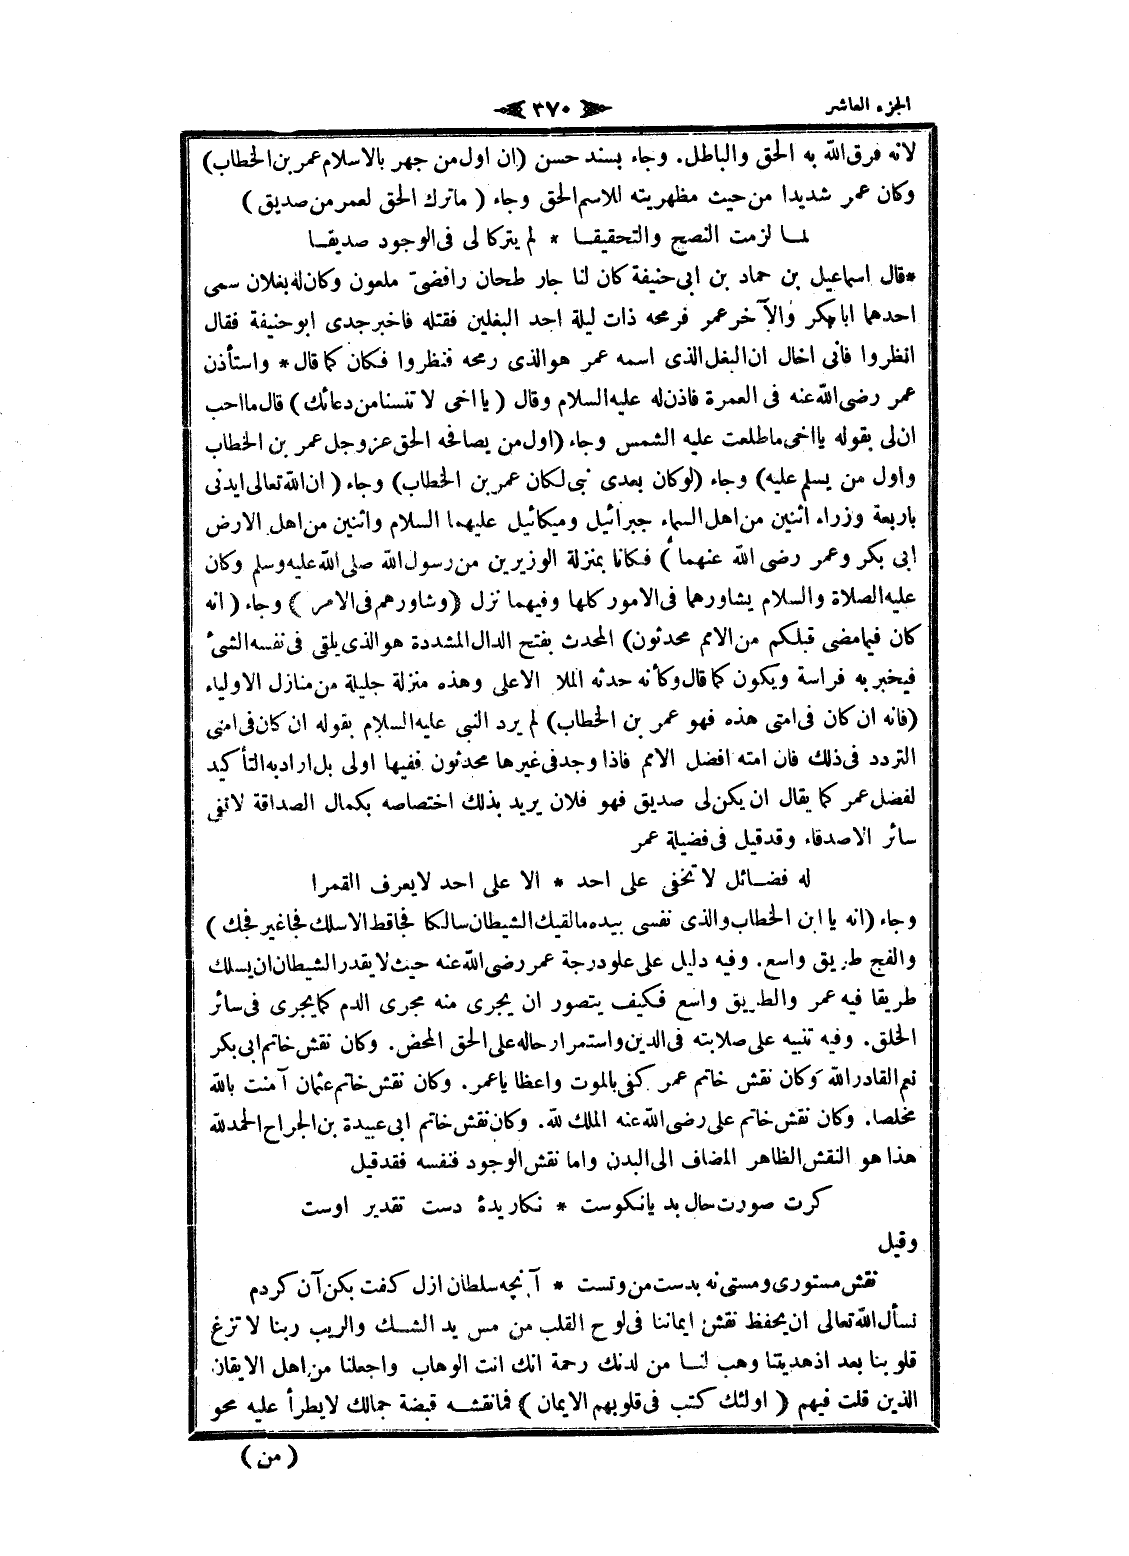 الجزء العاشر
٣٧٠
لانه فرق الله به الحق والباطل. وجاء بسند حسن (ان اول من جهر بالاسلام عمر بن الخطاب)
وكان عمر شديدا من حيث مظهريته للاسم الحق وجاء ( ماترك الحق لعمر من صديق )
لمـا لزمت النصح والتحقيقـا * لم يتركا لى فى الوجود صديقـا
*قال اسماعيل بن حماد بن ابى حنيفة كان لنا جار طحان رافضىّ ملعون وكان له بغلان سمى
احدهما ابا بكر والآخر عمر فرمحه ذات ليلة احد البغلين فقتله فاخبر جدى ابو حنيفة فقال
انظروا فانى اخال ان البغل الذى اسمه عمر هو الذى رمحه فنظروا فكان كما قال* واستأذن
عمر رضى الله عنه فى العمرة فاذن له عليه السلام وقال ( يا اخى لا تنسنا من دعائك ) قال ما احب
ان لى بقوله يا اخى ما طلعت عليه الشمس وجاء (اول من يصافحه الحق عز وجل عمر بن الخطاب
واول من يسلم عليه) وجاء (لوكان بعدى نبى لكان عمر بن الخطاب) وجاء ( ان الله تعالى ايدنى
باربعة وزراء اثنين من اهل السماء جبرائيل وميكائيل عليهما السلام واثنين من اهل الارض
ابى بكر وعمر رضى الله عنهما ) فكانا بمنزلة الوزيرين من رسول الله صلى الله عليه وسلم وكان
عليه الصلاة والسلام يشاورهما فى الامور كلها وفيهما نزل (وشاورهم فى الامر ) وجاء ( انه
كان فيما مضى قبلكم من الامم محدثون) المحدث بفتح الدال المشددة هو الذى يلقى فى نفسه الشئ
فيخبر به فراسة ويكون كما قال وكأنه حدثه الملا الاعلى وهذه منزلة جليلة من منازل الاولياء
(فانه ان كان فى امتى هذه فهو عمر بن الخطاب) لم يرد النبى عليه السلام بقوله ان كان فى امتى
التردد فى ذلك فان امته افضل الامم فاذا وجد فى غيرها محدثون ففيها اولى بل اراد به التأكيد
لفضل عمر كما يقال ان يكن لى صديق فهو فلان يريد بذلك اختصاصه بكمال الصداقة لا نفى
سائر الاصدقاء وقد قيل فى فضيلة عمر
له فضـائل لا تخفى على احد * الا على احد لايعرف القمرا
وجاء (انه يا ابن الخطاب والذى نفسى بيده ما لقيك الشيطان سالكا فجا قط الاسلك فجا غير فجك )
والفج طريق واسع. وفيه دليل على علو درجة عمر رضى الله عنه حيث لا يقدر الشيطان ان يسلك
طريقا فيه عمر والطريق واسع فكيف يتصور ان يجرى منه مجرى الدم كما يجرى فى سائر
الخلق. وفيه تنبيه على صلابته فى الدين واستمرار حاله على الحق المحض. وكان نقش خاتم ابى بكر
نعم القادر الله وكان نقش خاتم عمر كفى بالموت واعظا يا عمر. وكان نقش خاتم عثمان آمنت بالله
مخلصا. وكان نقش خاتم على رضى الله عنه الملك لله. وكان نقش خاتم ابى عبيدة بن الجراح الحمد لله
هذا هو النقش الظاهر المضاف الى البدن واما نقش الوجود فنفسه فقد قيل
كرت صورت حال بد يا نكوست * نكاريدهٔ دست تقدير اوست
وقيل
نقش مستورى ومستى نه بدست من وتست * آنچه سلطان ازل كفت بكن آن كردم
نسأل الله تعالى ان يحفظ نقش ايماننا فى لوح القلب من مس يد الشـك والريب ربنا لا تزغ
قلوبنا بعد اذ هديتنا وهب لنـا من لدنك رحمة انك انت الوهاب واجعلنا من اهل الايقان
الذين قلت فيهم ( اولئك كتب فى قلوبهم الايمان ) فما نقشـه قبضة جمالك لا يطرأ عليه محو
( من )